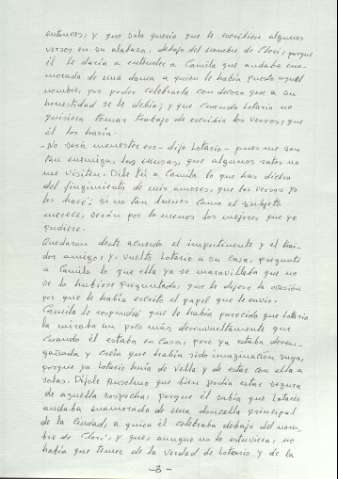 entonces; y que solo quería que le escribiese algunos
versos en su alabanza, debajo del nombre de Clori, porque
él le daría a entender a Camila que andaba ena-
morado de una dama a quien le había puesto aquel
nombre, por poder celebrarla con decoro que a su
honestidad se le debía; y que cuando Lotario no
quisiera tomar trabajo de escribir los versos, que
él los haría.
-No será menester eso -dijo Lotario- pues no me son
tan enemigas las musas, que algunos ratos no
me visiten. Dile tú a Camila lo que has dicho
del fingimiento de mis amores, que los versos yo
los haré; si no tan buenos como el subjeto
merece, serán por lo menos los mejores que yo
pudiere.
Quedaron deste acuerdo el impertinente y el trai-
dor amigo; y, vuelto Anselmo a su casa, preguntó
a Camila lo que ella ya se maravillaba que no
se lo hubiese preguntado; que le dijese la ocasión
por que le había escrito el papel que le envió.
Camila le respondió que le había parecido que Lotario
la miraba un poco más desenvueltamente que
cuando él estaba en casa; pero ya estaba desen-
gañada y creía que había sido imaginación suya,
porque ya Lotario huía de vella y de estar con ella a
solas. Díjole Anselmo que bien podía estar segura
de aquella sospecha, porque él sabía que Lotario
andaba enamorado de una doncella principal
de la ciudad, a quien él celebraba debajo del nom-
bre de Clori, y que, aunque no lo estuviera, no
había que temer de la verdad de Lotario y de la
-3-